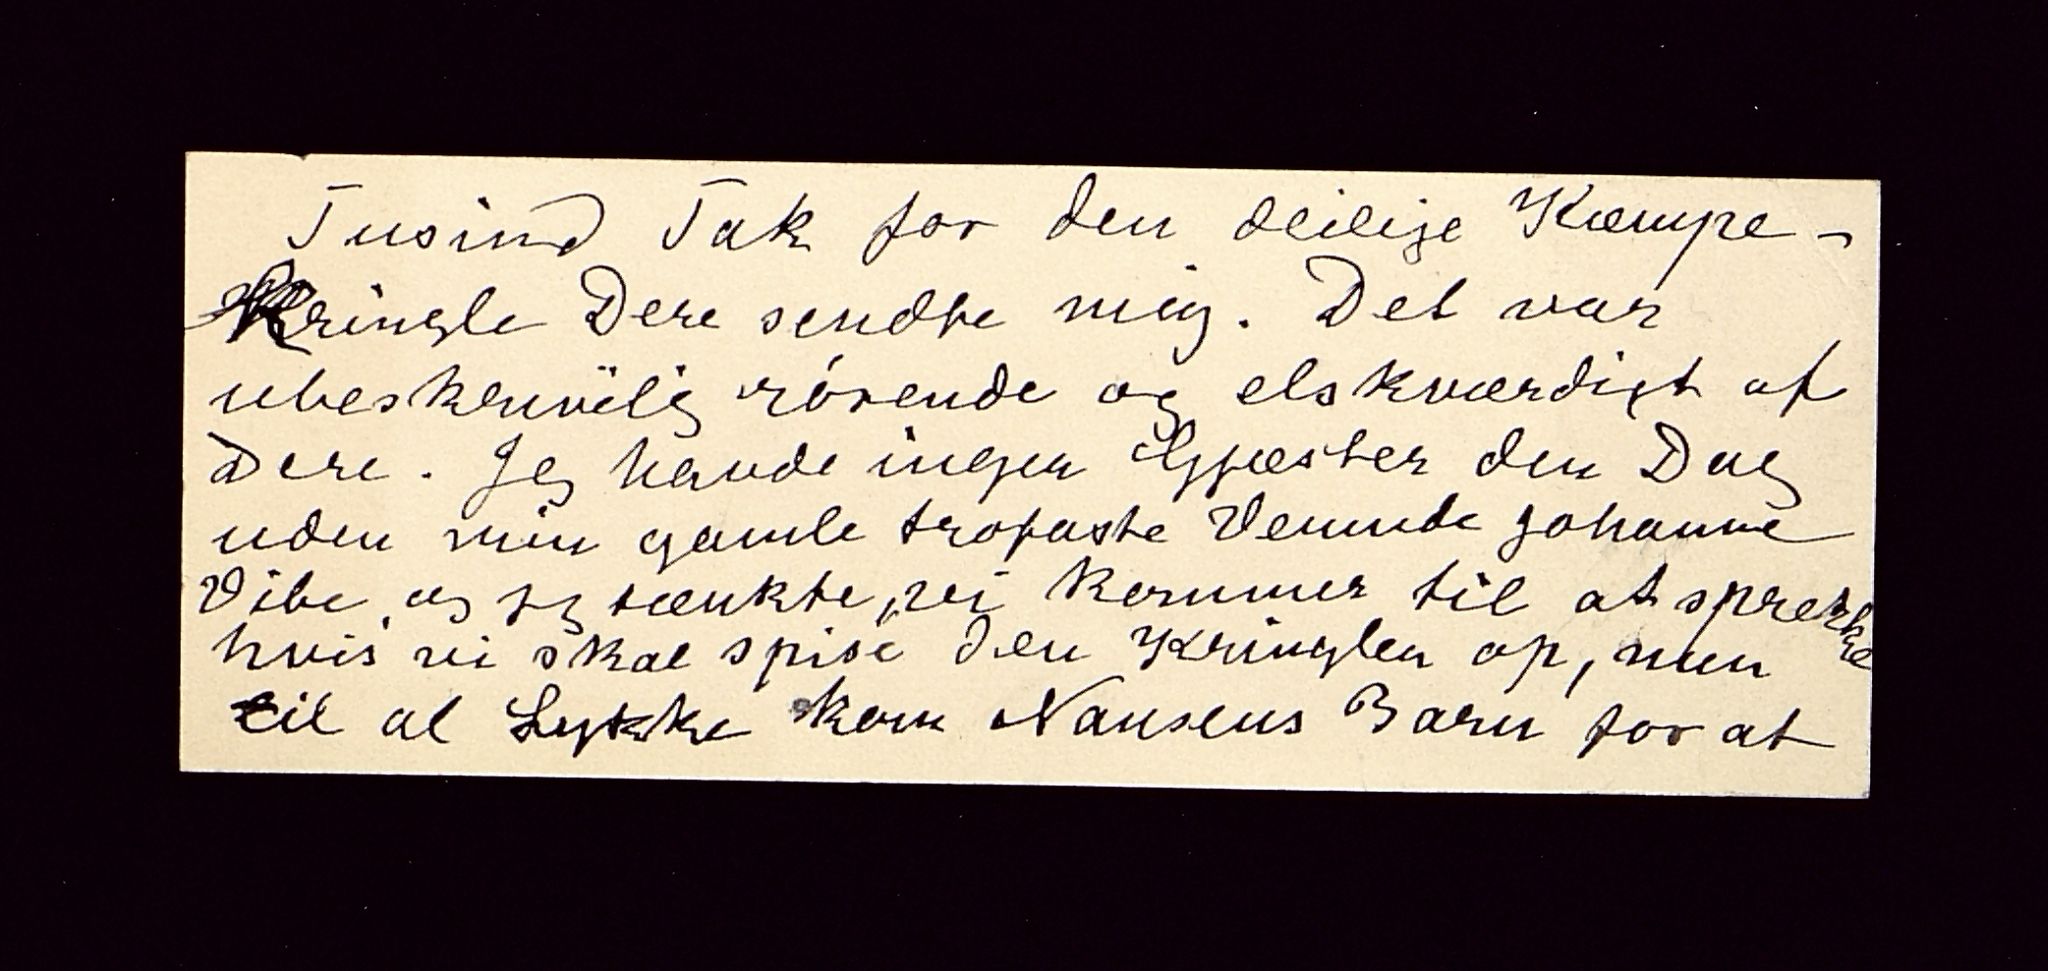 Tusind Tak for den deilige Kæmpe-
Kringle Dere sendte mig. Det var
ubeskrivelig rörende og elskværdigt af
Dere. Jeg havde ingen Gjæster den Dag
uden min gamle trofaste Veninde Johanne
Vibe, og jeg tænkte, vi kommer til at sprekke
hvis vi skal spise den Kringlen op, men
til al Lykke kom Nansens Barn for at